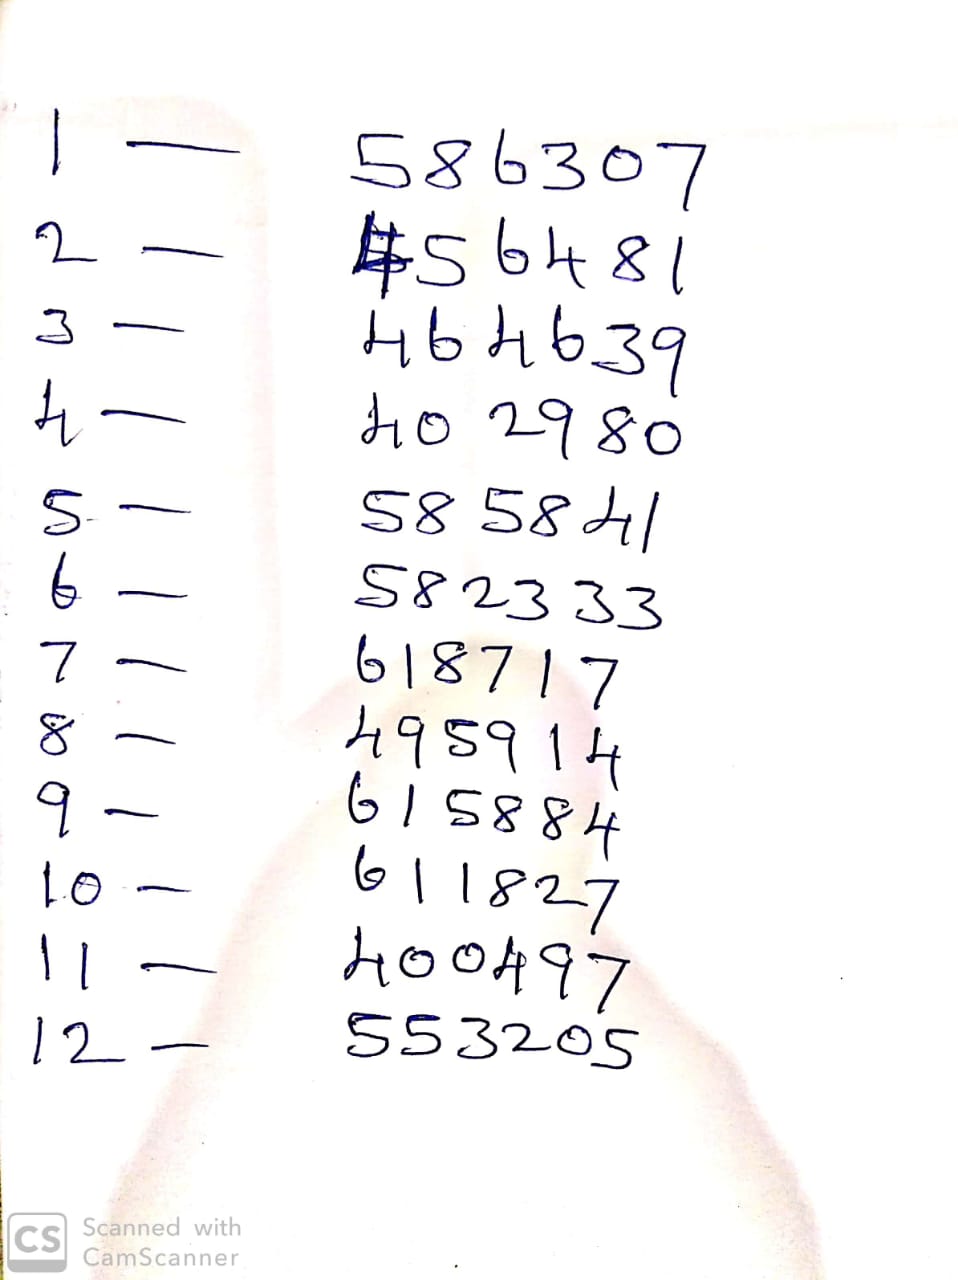 1 — 586307
2 — 456481
3 — 464639
4 — 402980
5 — 585841
6 — 582333
7 — 618717
8 — 495914
9 — 615884
10 — 611827
11 — 400497
12 — 553205
CS Scanned with
CamScanner